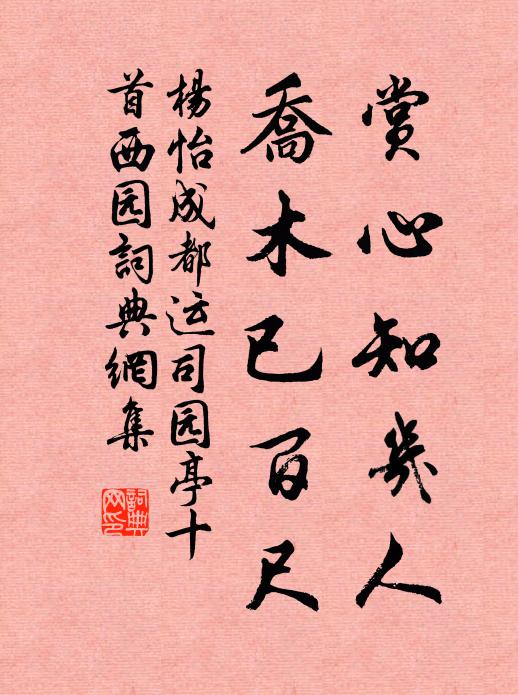 赏心知几人
喬木已百尺
楊怡成都运司园亭十
首西园詞典網集
詞典網印